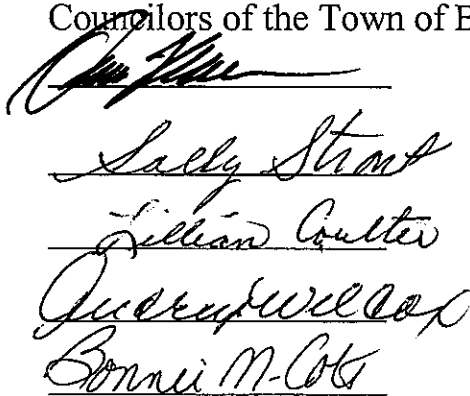 Councilors of the Town of
Sally Strout
Lillian Coulter
Audrey Wilcox
Bonnie N. Cots